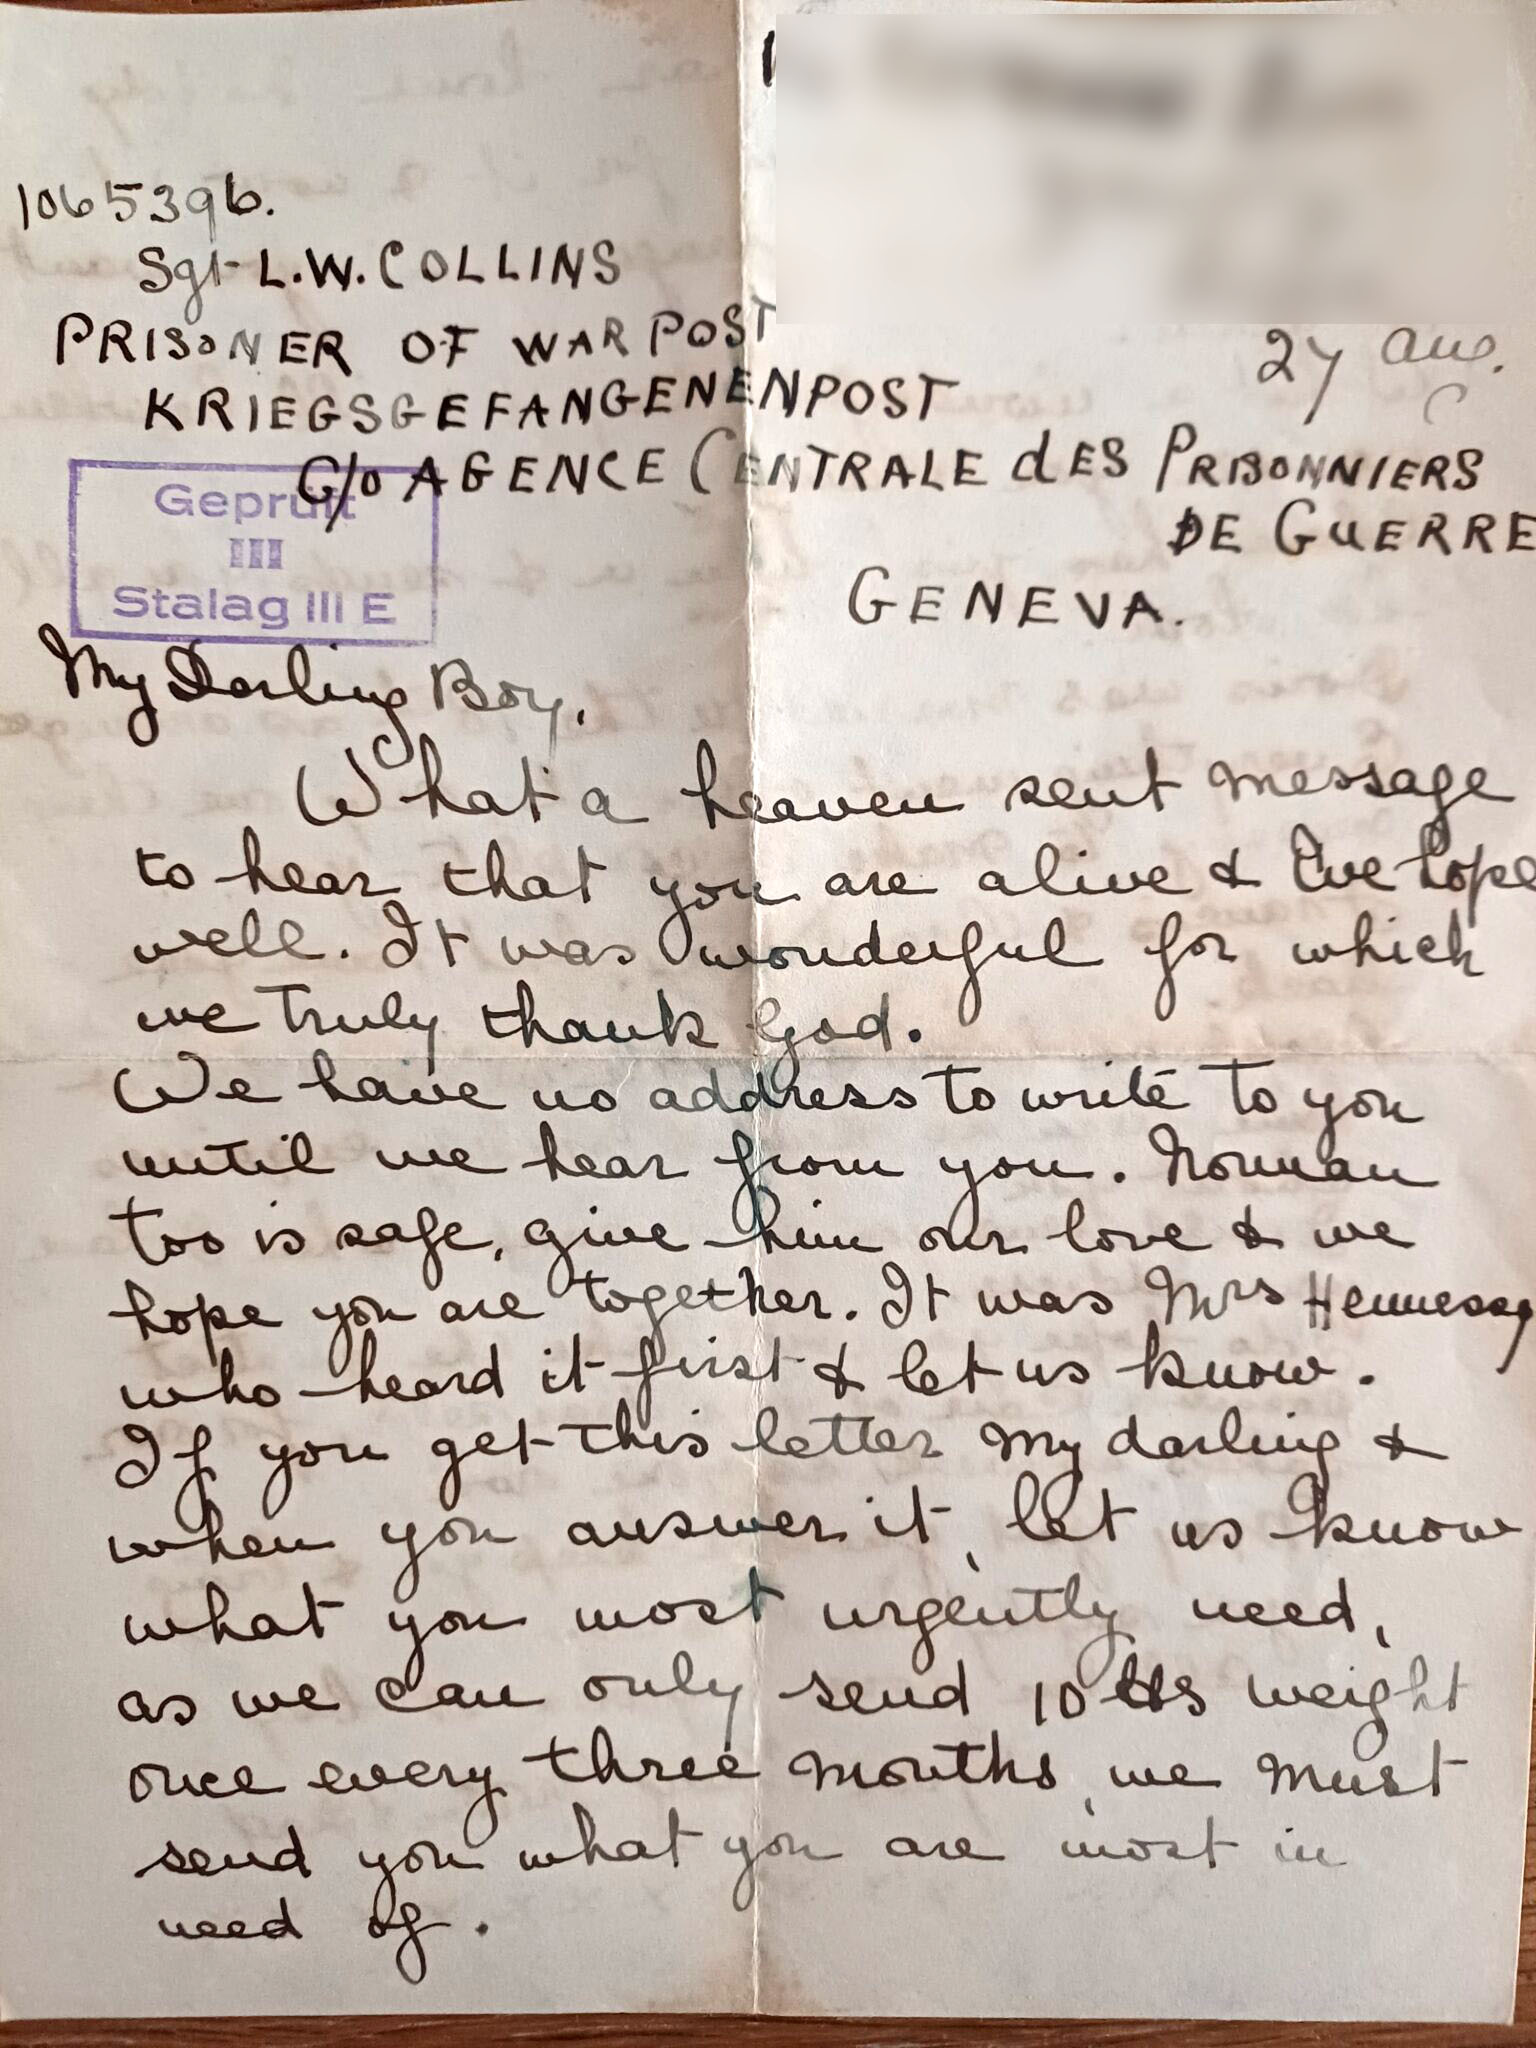 1065396.
Sgt L.W. COLLINS
PRISONER OF WAR POST
27 Aug.
KRIEGSGEFANGENENPOST
C/o AGENCE CENTRALE dES PRISONNIERS
DE GUERRE
GENEVA.
Geprüft
III
Stalag III E
My Darling Boy,
What a heaven sent message
to hear that you are alive & I've hope
well. It was wonderful for which
we truly thank God.
We have no address to write to you
until we hear from you. Norman
too is safe, give him our love & we
hope you are together. It was Mrs Hennessy
who heard it first & let us know.
If you get this letter my darling &
when you answer it, let us know
what you most urgently need,
as we can only send 10 lbs weight
once every three months, we must
send you what you are most in
need of.